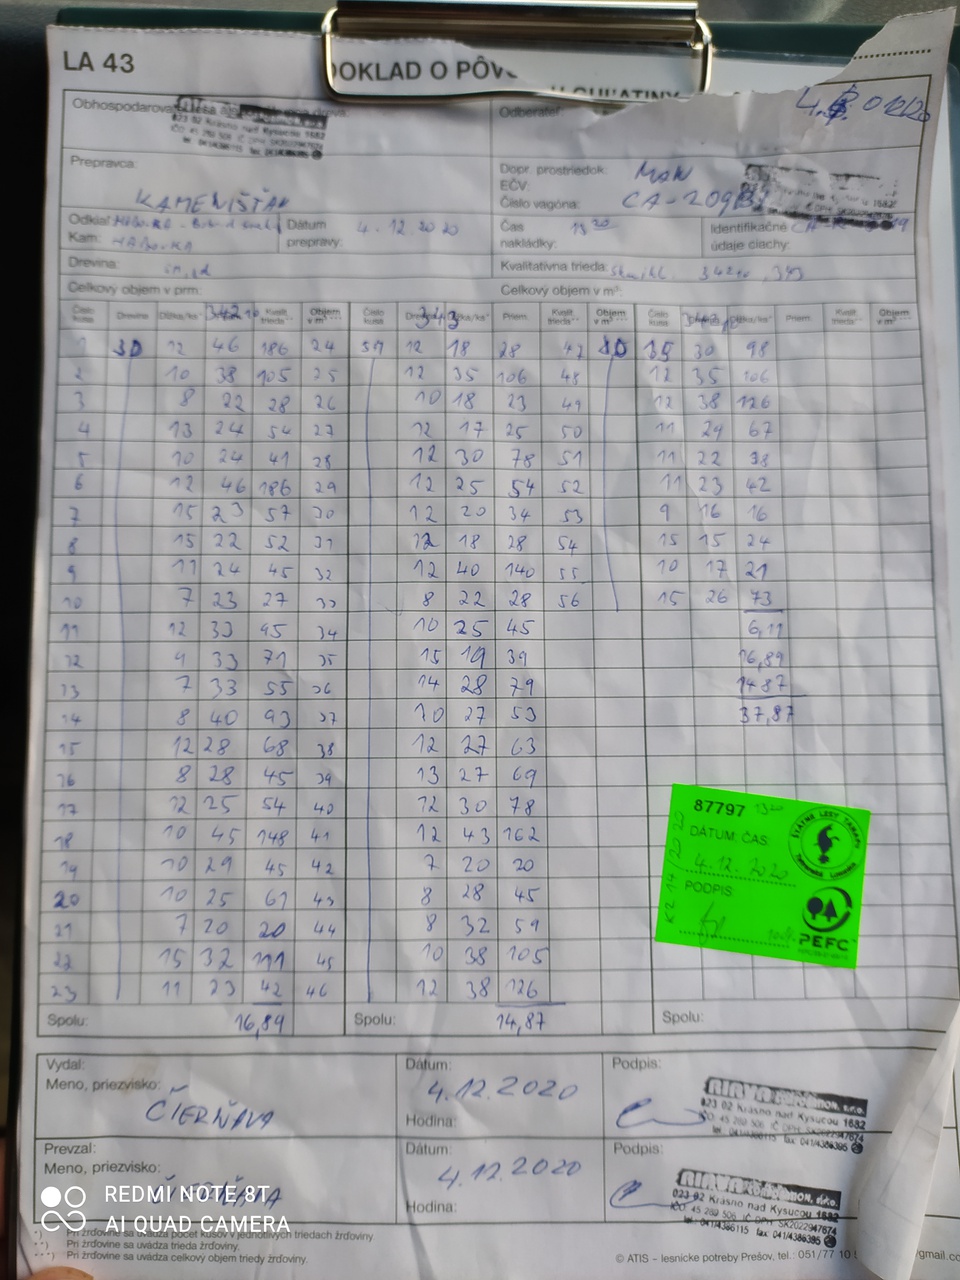 LA 43
DOKLAD O PÔV
4. 2020
Obhospodarova
Odberateľ
023 02 Krásno nad Kysucou 1682
Prepravca:
KAMENIŠŤÁK
Dopr. prostriedok: MAN
EČV:
Číslo vagóna: CA-209
Odkiaľ:
Kam: HABOVKA
Dátum prepravy: 4.12.2020
Čas nakládky: 13 20
Identifikačné údaje ciachy:
Drevina: sm, jd
Kvalitatívna trieda: 342 343
Celkový objem v prm:
Celkový objem v m³:
Číslo kusa Drevina Dĺžka/ks Kvalit. trieda Objem v m³ Číslo kusa Dĺžka/ks Priem. Kvalit. trieda Objem v m³ Číslo kusa Dĺžka/ks Priem. Kvalit. trieda Objem v m³
1 12 46 186 24 12 18 28 47 15 30 98
2 10 38 105 25 12 35 106 48 12 35 106
3 8 22 28 26 10 18 23 49 12 38 126
4 13 24 54 27 12 17 25 50 11 29 67
5 10 24 41 28 12 30 78 51 11 22 38
6 12 46 186 29 12 25 54 52 11 23 42
7 15 23 57 30 12 20 34 53 9 16 16
8 15 22 52 31 12 18 28 54 15 15 24
9 11 24 45 32 12 40 140 55 10 17 21
10 7 23 27 33 8 22 28 56 15 26 73
11 12 33 95 34 10 25 45 6,11
12 9 33 71 35 15 19 39 16,89
13 7 33 55 36 14 28 79 14 87
14 8 40 93 37 10 27 53 37,87
15 12 28 68 38 12 27 63
16 8 28 45 39 13 27 69
17 12 25 54 40 12 30 78
18 10 45 148 41 12 43 162
19 10 29 45 42 7 20 20
20 10 25 61 43 8 28 45
21 7 20 20 44 8 32 59
22 15 32 111 45 10 38 105
23 11 23 42 46 12 38 126
Spolu: 16,89 Spolu: 14,87 Spolu:
87797 13 20
DÁTUM: ČAS:
4.12.2020
PODPIS
ŠTÁTNE LESY TANAPU
PEFC
Vydal:
Meno, priezvisko:
ČIERŇAVA
Dátum:
4.12.2020
Hodina:
Podpis:
023 02 Krásno nad Kysucou 1682
IČO 45 280 506 IČ DPH SK2022947674
tel: 041/4386115 fax 041/4386395
Prevzal:
Meno, priezvisko:
Dátum:
4.12.2020
Hodina:
Podpis
RIAVA
023 02 Krásno nad Kysucou 1682
IČO 45 280 506 IČ DPH SK2022947674
tel: 041/4386115 fax 041/4386395
REDMI NOTE 8T
AI QUAD CAMERA
*) Pri žrďovine sa uvádza počet kusov v jednotlivých triedach žrďoviny.
**) Pri žrďovine sa uvádza trieda žrďoviny.
***) Pri žrďovine sa uvádza celkový objem triedy žrďoviny.
© ATIS – lesnícke potreby Prešov, tel.: 051/77 10